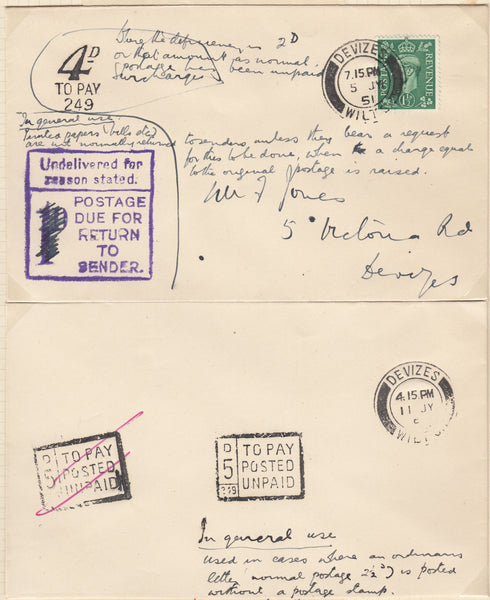 4D
TO PAY
249
Here the deficiency is 2D
or that amount as normal
postage has been unpaid
surcharge
DEVIZES
7.15 PM
5 JY
51
WILTS
POSTAGE
REVENUE
1½
In general use
Printed papers bills etc
are not normally returned to senders, unless they bear a request
for this to be done, when a charge equal
to the original postage is raised.
Undelivered for
reason stated.
POSTAGE
DUE FOR
RETURN
TO
SENDER.
Mr F Jones
5 Victoria Rd
Devizes
DEVIZES
4.15 PM
11 JY
WILTS
D
5
TO PAY
POSTED
UNPAID
D
5
249
TO PAY
POSTED
UNPAID
In general use
used in cases where an ordinary
letter, normal postage 2½D) is posted
without a postage stamp.